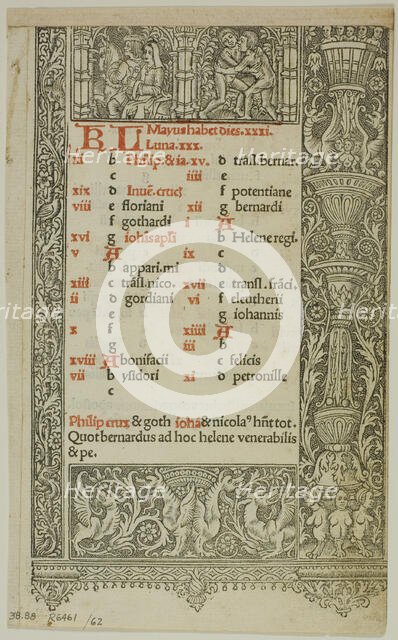 KL Mayus habet dies.xxxi.
Luna.xxx.
xi Philip & ia. xv. d trasl. bernar.
c iiii e
xix d Inuē. cruc̄ f potentiane
viii e floriani xii g bernardi
f gothardi i A
xvi g iohis apl'i b Helene regi.
v A ix c
b appari. mi d
xiii c trāsl. nico. xvii e transl. frāci.
ii d gordiani vi f eleutherii
e g iohannis
x f xiiii A
g iii b
xviii A bonifacii c felicis
vii b ysidori xi d petronille
c
Philip crux & goth iohā & nicola⁹ hn̄t tot.
Quot bernardus ad hoc helene venerabilis
& pe.
Heritage
Heritage
Heritage
Heritage
Heritage
Heritage
C
38.88 R6461 /62